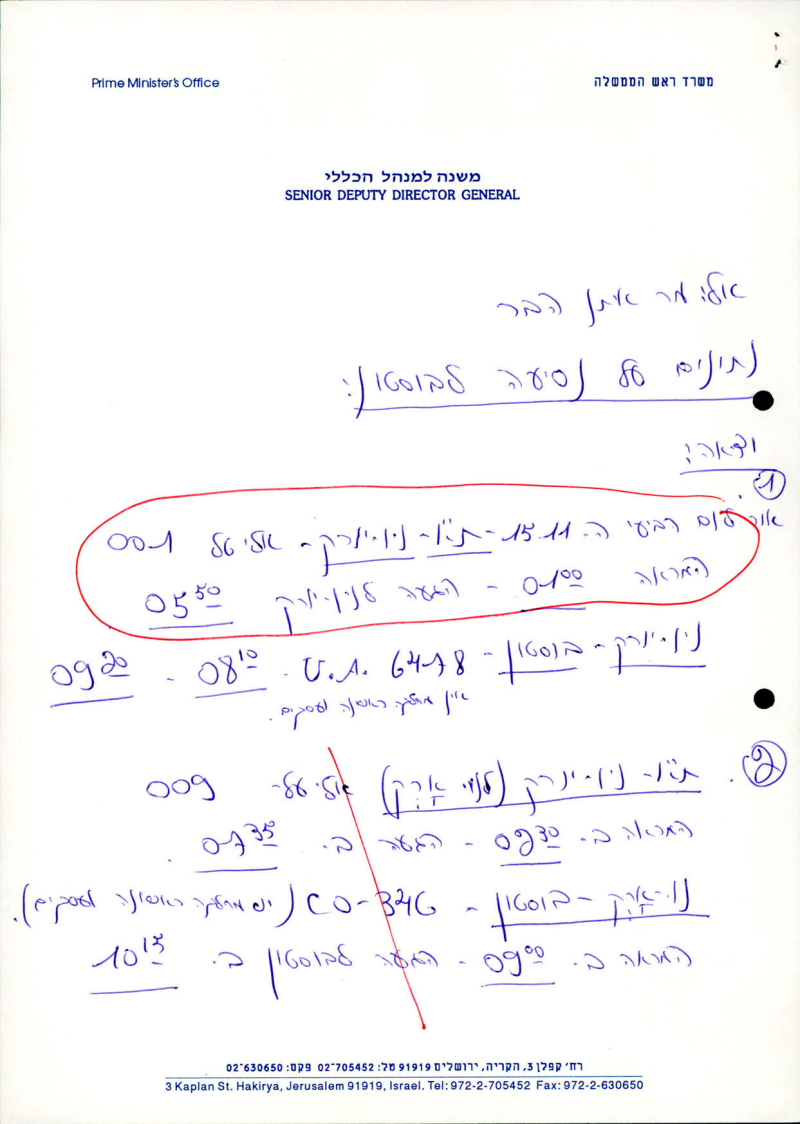 Prime Minister's Office
משרד ראש הממשלה
משנה למנהל הכללי
SENIOR DEPUTY DIRECTOR GENERAL
אל: מר איתן הבר
נתונים על נסיעה לבוסטון:
יציאה:
1.
אור ליום רביעי ה. 15.11 - ת"א - ניו-יורק - אל על 001
המראה 01⁰⁰ - הגעה לניו-יורק 05⁵⁰
ניו-יורק - בוסטון - U.A. 6478 - 08¹⁰ - 09²⁰
אין מחלקה ראשונה ועסקים.
2.
ת"א - ניו-יורק (לניו ארק) אל על 009
המראה ב. 02³⁰ - הגעה ב. 07³⁵.
ניו-ארק - בוסטון - CO-346 (יש מחלקה ראשונה ועסקים).
המראה ב. 09⁰⁰ - הגעה לבוסטון ב. 10¹⁵
רח' קפלן 3, הקריה, ירושלים 91919 טל: 02-705452 פקס: 02-630650
3 Kaplan St. Hakirya, Jerusalem 91919, Israel. Tel: 972-2-705452 Fax: 972-2-630650